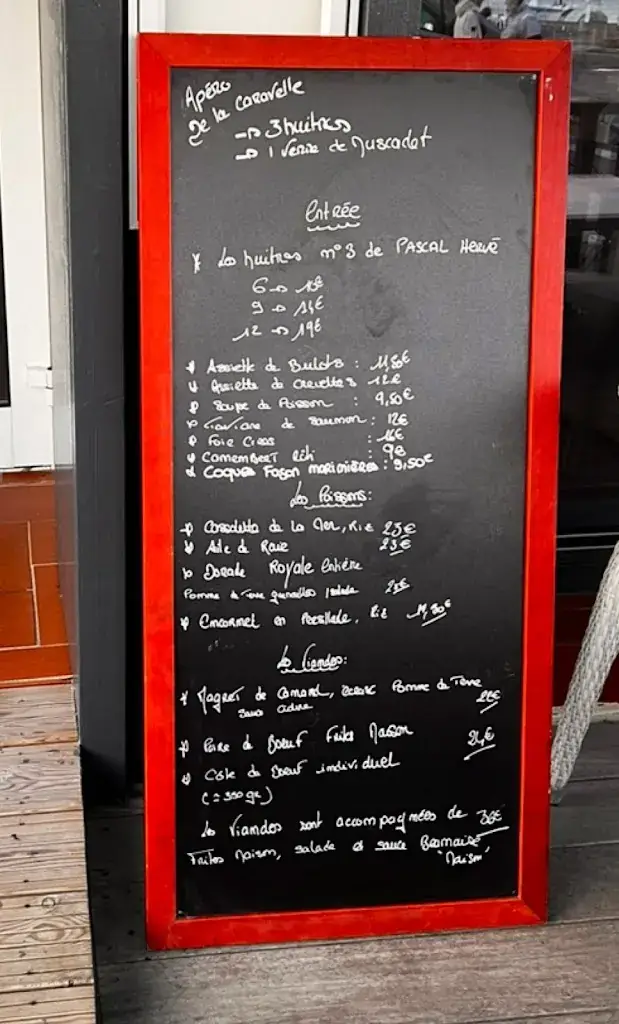 Apéro
De la Caravelle
→ 3 huitres
→ 1 Verre de Muscadet
Entrée
* Les huitres n°3 de PASCAL HERVÉ
6 →
9 → 14€
12 → 19€
Assiette de Bulots : 11,50€
Assiette de Crevettes 12€
Soupe de Poisson : 9,50€
de Saumon : 12€
Foie Gras : 16€
Camembert Rôti : 9€
Coques Façon marinières : 9,50€
Les Poissons:
Cassolette de la Mer, Riz 23€
Aile de Raie 23€
Dorade Royale Entière
Pomme de Terre grenailles salade
Encornet en Persillade, Riz
Les Viandes:
Magret de Canard, écrasé Pomme de Terre
sauce
Poire de Boeuf Frites Maison 24€
Côte de Boeuf individuel
(≃ 350 gr)
Les Viandes sont accompagnées de 36€
Frites Maison, salade et sauce Béarnaise
Maison